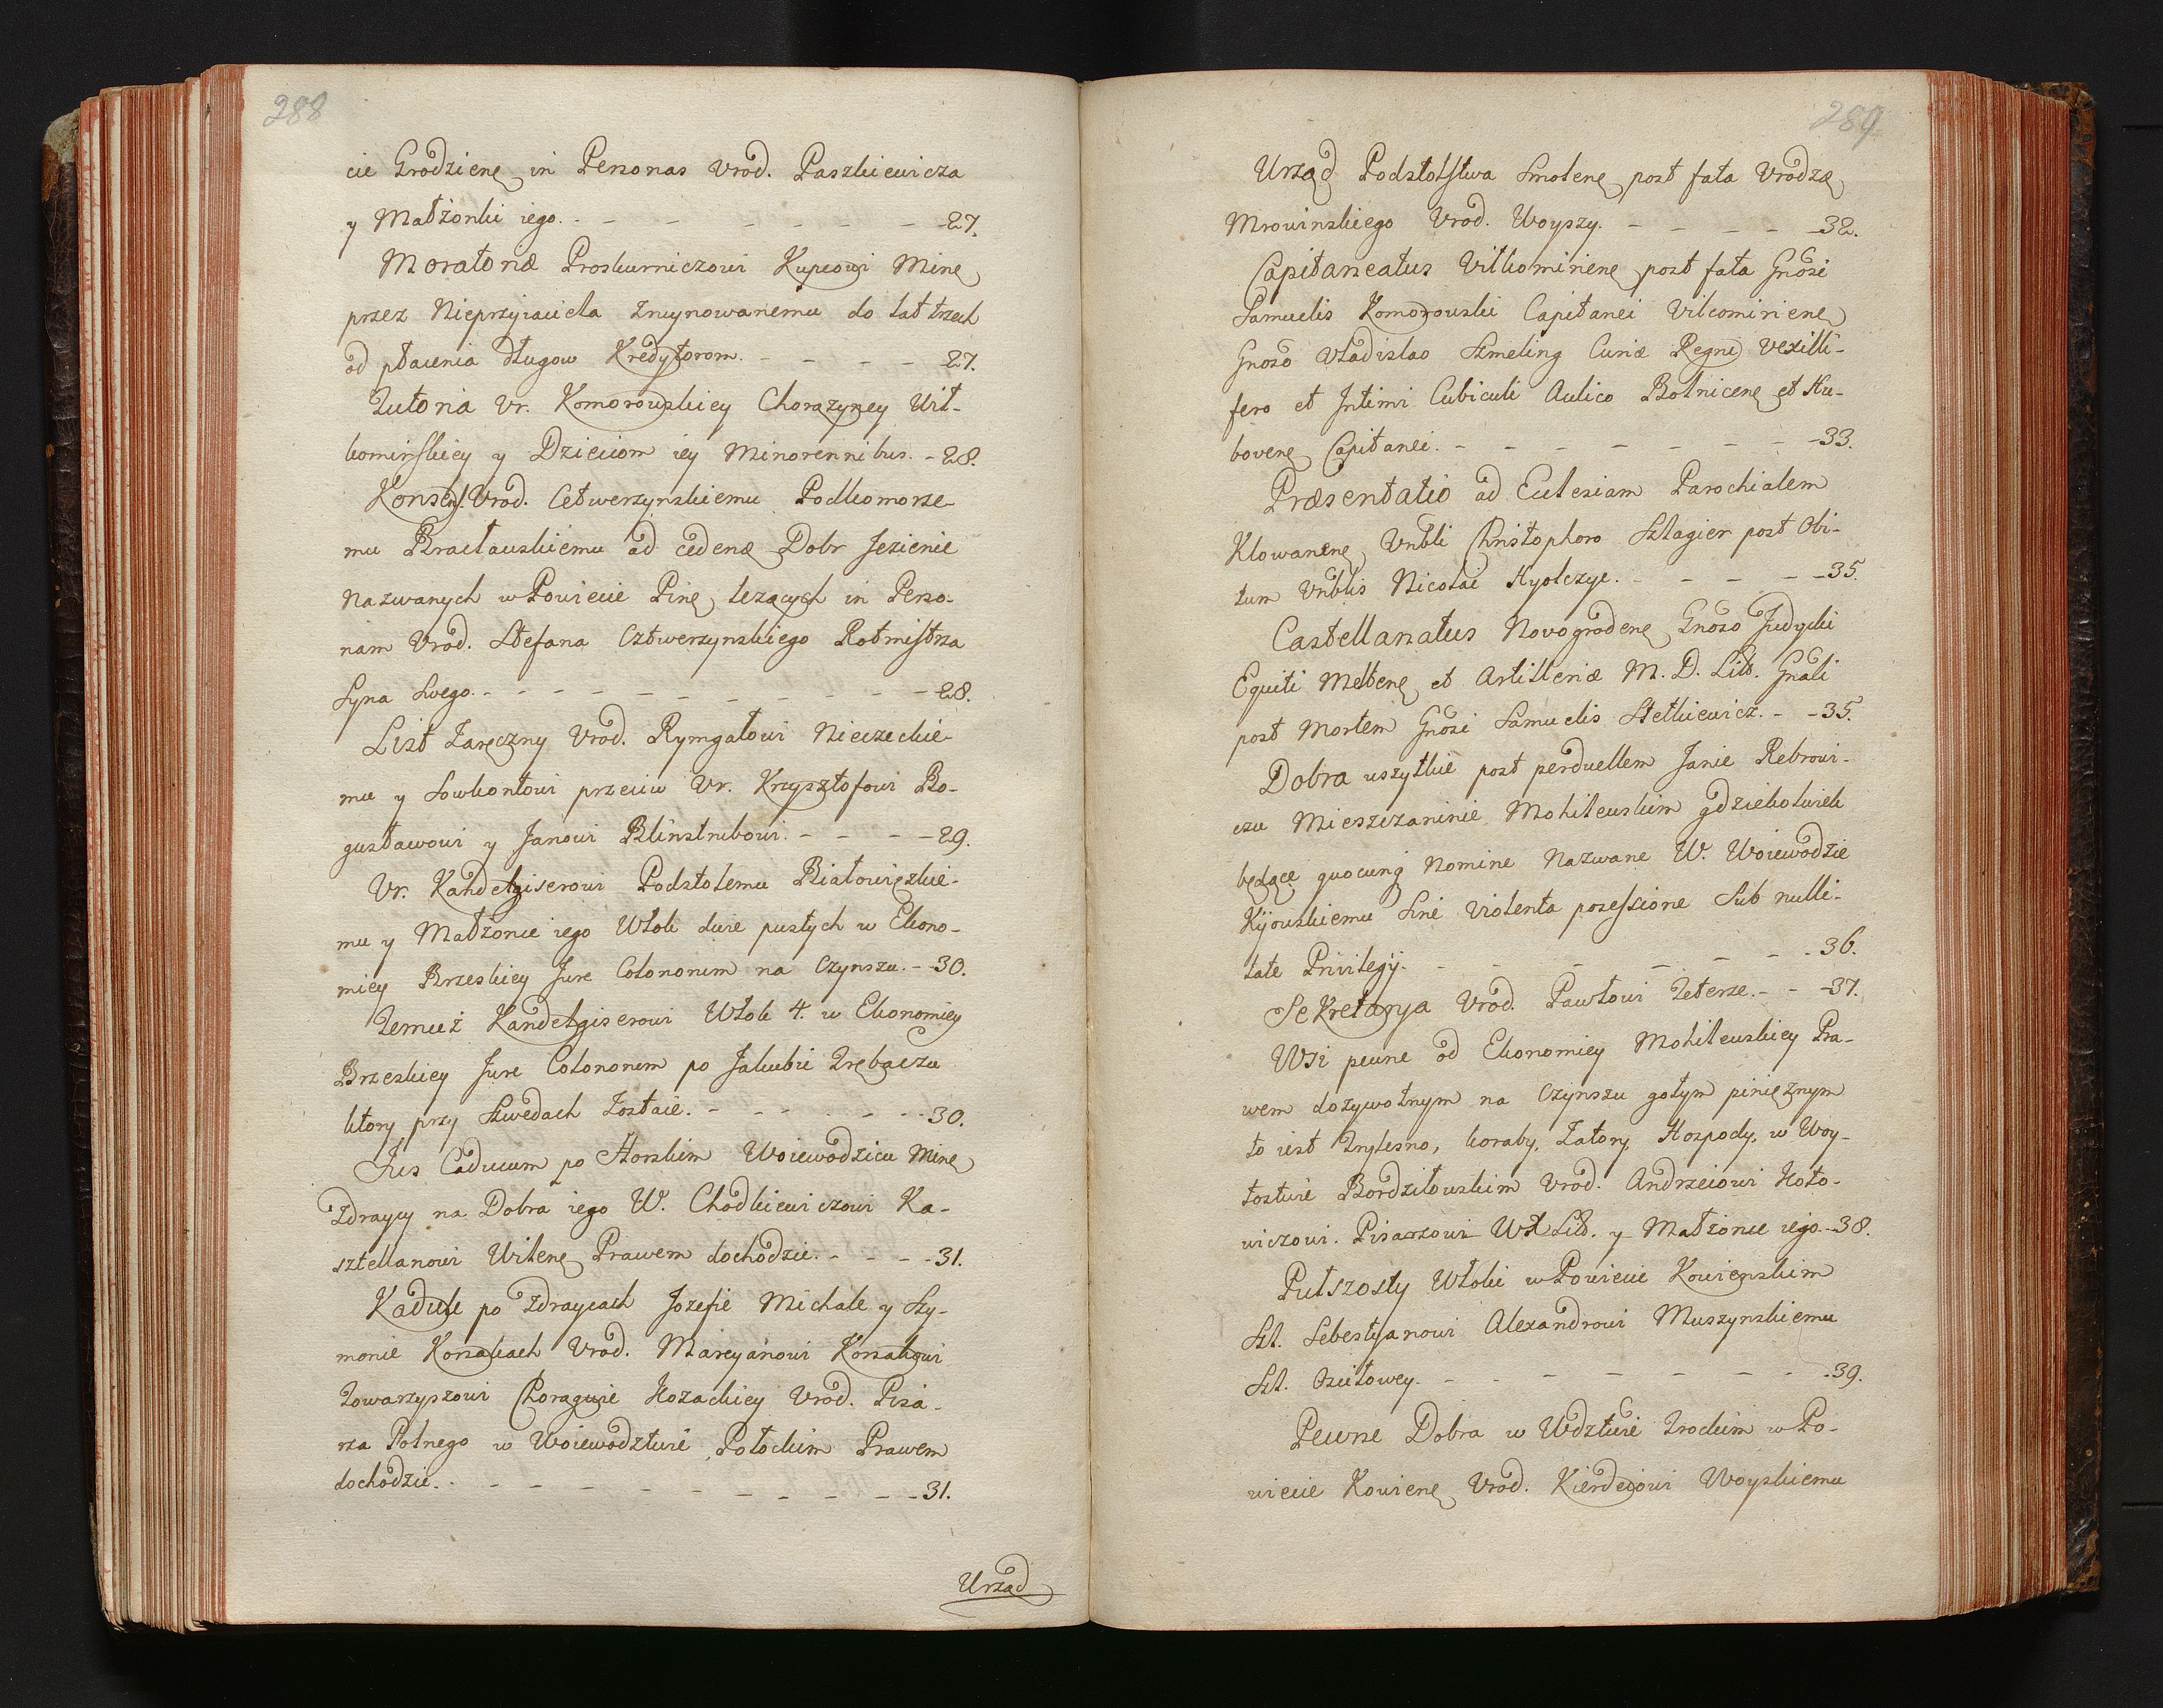 288
cie Grodzienę in Personas Vrod. Paszkiewicza
y Małżonki iego. - - - - - - 27.
Moratoriæ Proskurniczowi Kupcowi Minę
przez Nieprzyiaciela Znuynowanemu do lat trzech
od płacenia długow Kredytorom. - - - - 27.
Tutoria Vr. Komorowskiey Chorązyney Wił-
komirskiey y Dzieciom iey Minorennibus. - 28.
Konsens Vrod. Cetwerzynskiemu Podkomorze-
mu Bracławskiemu ad cedenæ Dobr Jezienie
Nazwanych w Powiecie Pinę leżących in Perso-
nam Vrod. Stefana Cztwerzynskiego Rotmistrza
Syna Swego. - - - - - - - - - - 28.
List Zaręczny Vrod. Rymgałowi Nieczeckie-
mu y Sowkontowi przeciw Vr. Krzysztofowi Bo-
gusławowi y Janowi Blinstrubowi. - - - - 29.
Vr. Kandelgiserowi Podstolemu Białowięzkie-
mu y Małżonce iego Włok dwie pustych w Ekono-
miey Brzeskiey Jure Colonorum na Czynszu. - - 30.
Temuż Kandelgiserowi Włok 4. w Ekonomiey
Brzeskiey Jure Colonorum po Jakubie Trębaczu
ktory przy Szwedach Zostaie. - - - - - - 30.
Jus Caducum po Horskim Woiewodzicu Minę
Zdraycy na Dobra iego W. Chodkiewiczowi Ka-
sztellanowi Wilenę Prawem dochodzic. - - - - 31.
Kaduk po Zdraycach Jozefie Michale y Szy-
monie Korsakach Vrod. Marcyanowi Korsakowi
Towarzyszowi Chorągwie Kozackiey Vrod. Pisa-
rza Polnego w Woiewodztwie Połockim Prawem
dochodzic. - - - - - - - - - - 31.
Urząd
289
Urząd Podstolstwa Smolenę post fata Vrodzę
Mrowinskiego Vrod. Woyszy. - - - - - 32.
Capitaneatus Vilkomirienę post fata Gnosi
Samuelis Komorowski Capitanei Vilcomirienę
Gnoso Vladislao Szmeling Curiæ Regni Vexilli-
fero et Intimi Cubiculi Aulico Botnicenę et Hu-
bovenę Capitanei. - - - - - - - 33.
Præsentatio ad Eclesiam Parochialem
Klowanenę Vnbli Christophoro Szlagier post Obi-
tum Vnblis Nicolai Hyolczyc. - - - - - 35.
Castellanatus Novogrodenę Gnoso Judycki
Equiti Meltenę et Artilleriæ M. D. Lit. Gnali
post Mortem Gnosi Samuelis Stetkiewicz. - - 35.
Dobra wszytkie post perduellem Janie Rebrowi-
czu Mieszczaninie Mohilewskim gdziekolwiek
będące quocunq Nomine Nazwane W. Woiewodzie
Kijowskiemu Sine violenta possessione Sub nulli-
tate Privilegij. - - - - - - - 36.
SeKretarya Vrod. Pawłowi Teterze. - - - 37.
WSi pewne od Ekonomiey Mohilewskiey Pra-
wem dozywotnym na Czynszu gołym pinięznym
to iest Znylesno, koraby, Zatory, Hospody, w Woy-
tostwie Bordziłowskim Vrod. Andrzeiowi Koto-
wiczowi. Pisarzowi WX Lit. y Małżonce iego. - 38.
Putszosty Włoki w Powiecie Kowienskim
Szl. Sebestyanowi Alexandrowi Muszynskiemu
Szl. Osiełowey. - - - - - - - - 39.
Pewne Dobra w Wdztwie Trockim w Po-
wiecie Kowienę Vrod. Kierdeiowi Woyskiemu